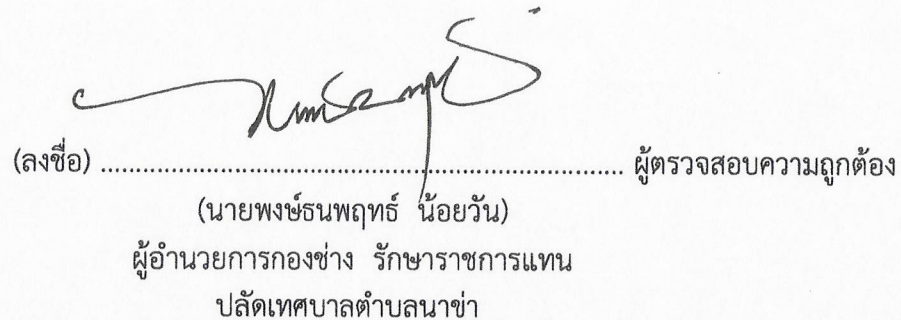 (ลงชื่อ) ........................................................................ ผู้ตรวจสอบความถูกต้อง
(นายพงษ์ธนพฤทธ์ น้อยวัน)
ผู้อำนวยการกองช่าง รักษาราชการแทน
ปลัดเทศบาลตำบลนาข่า